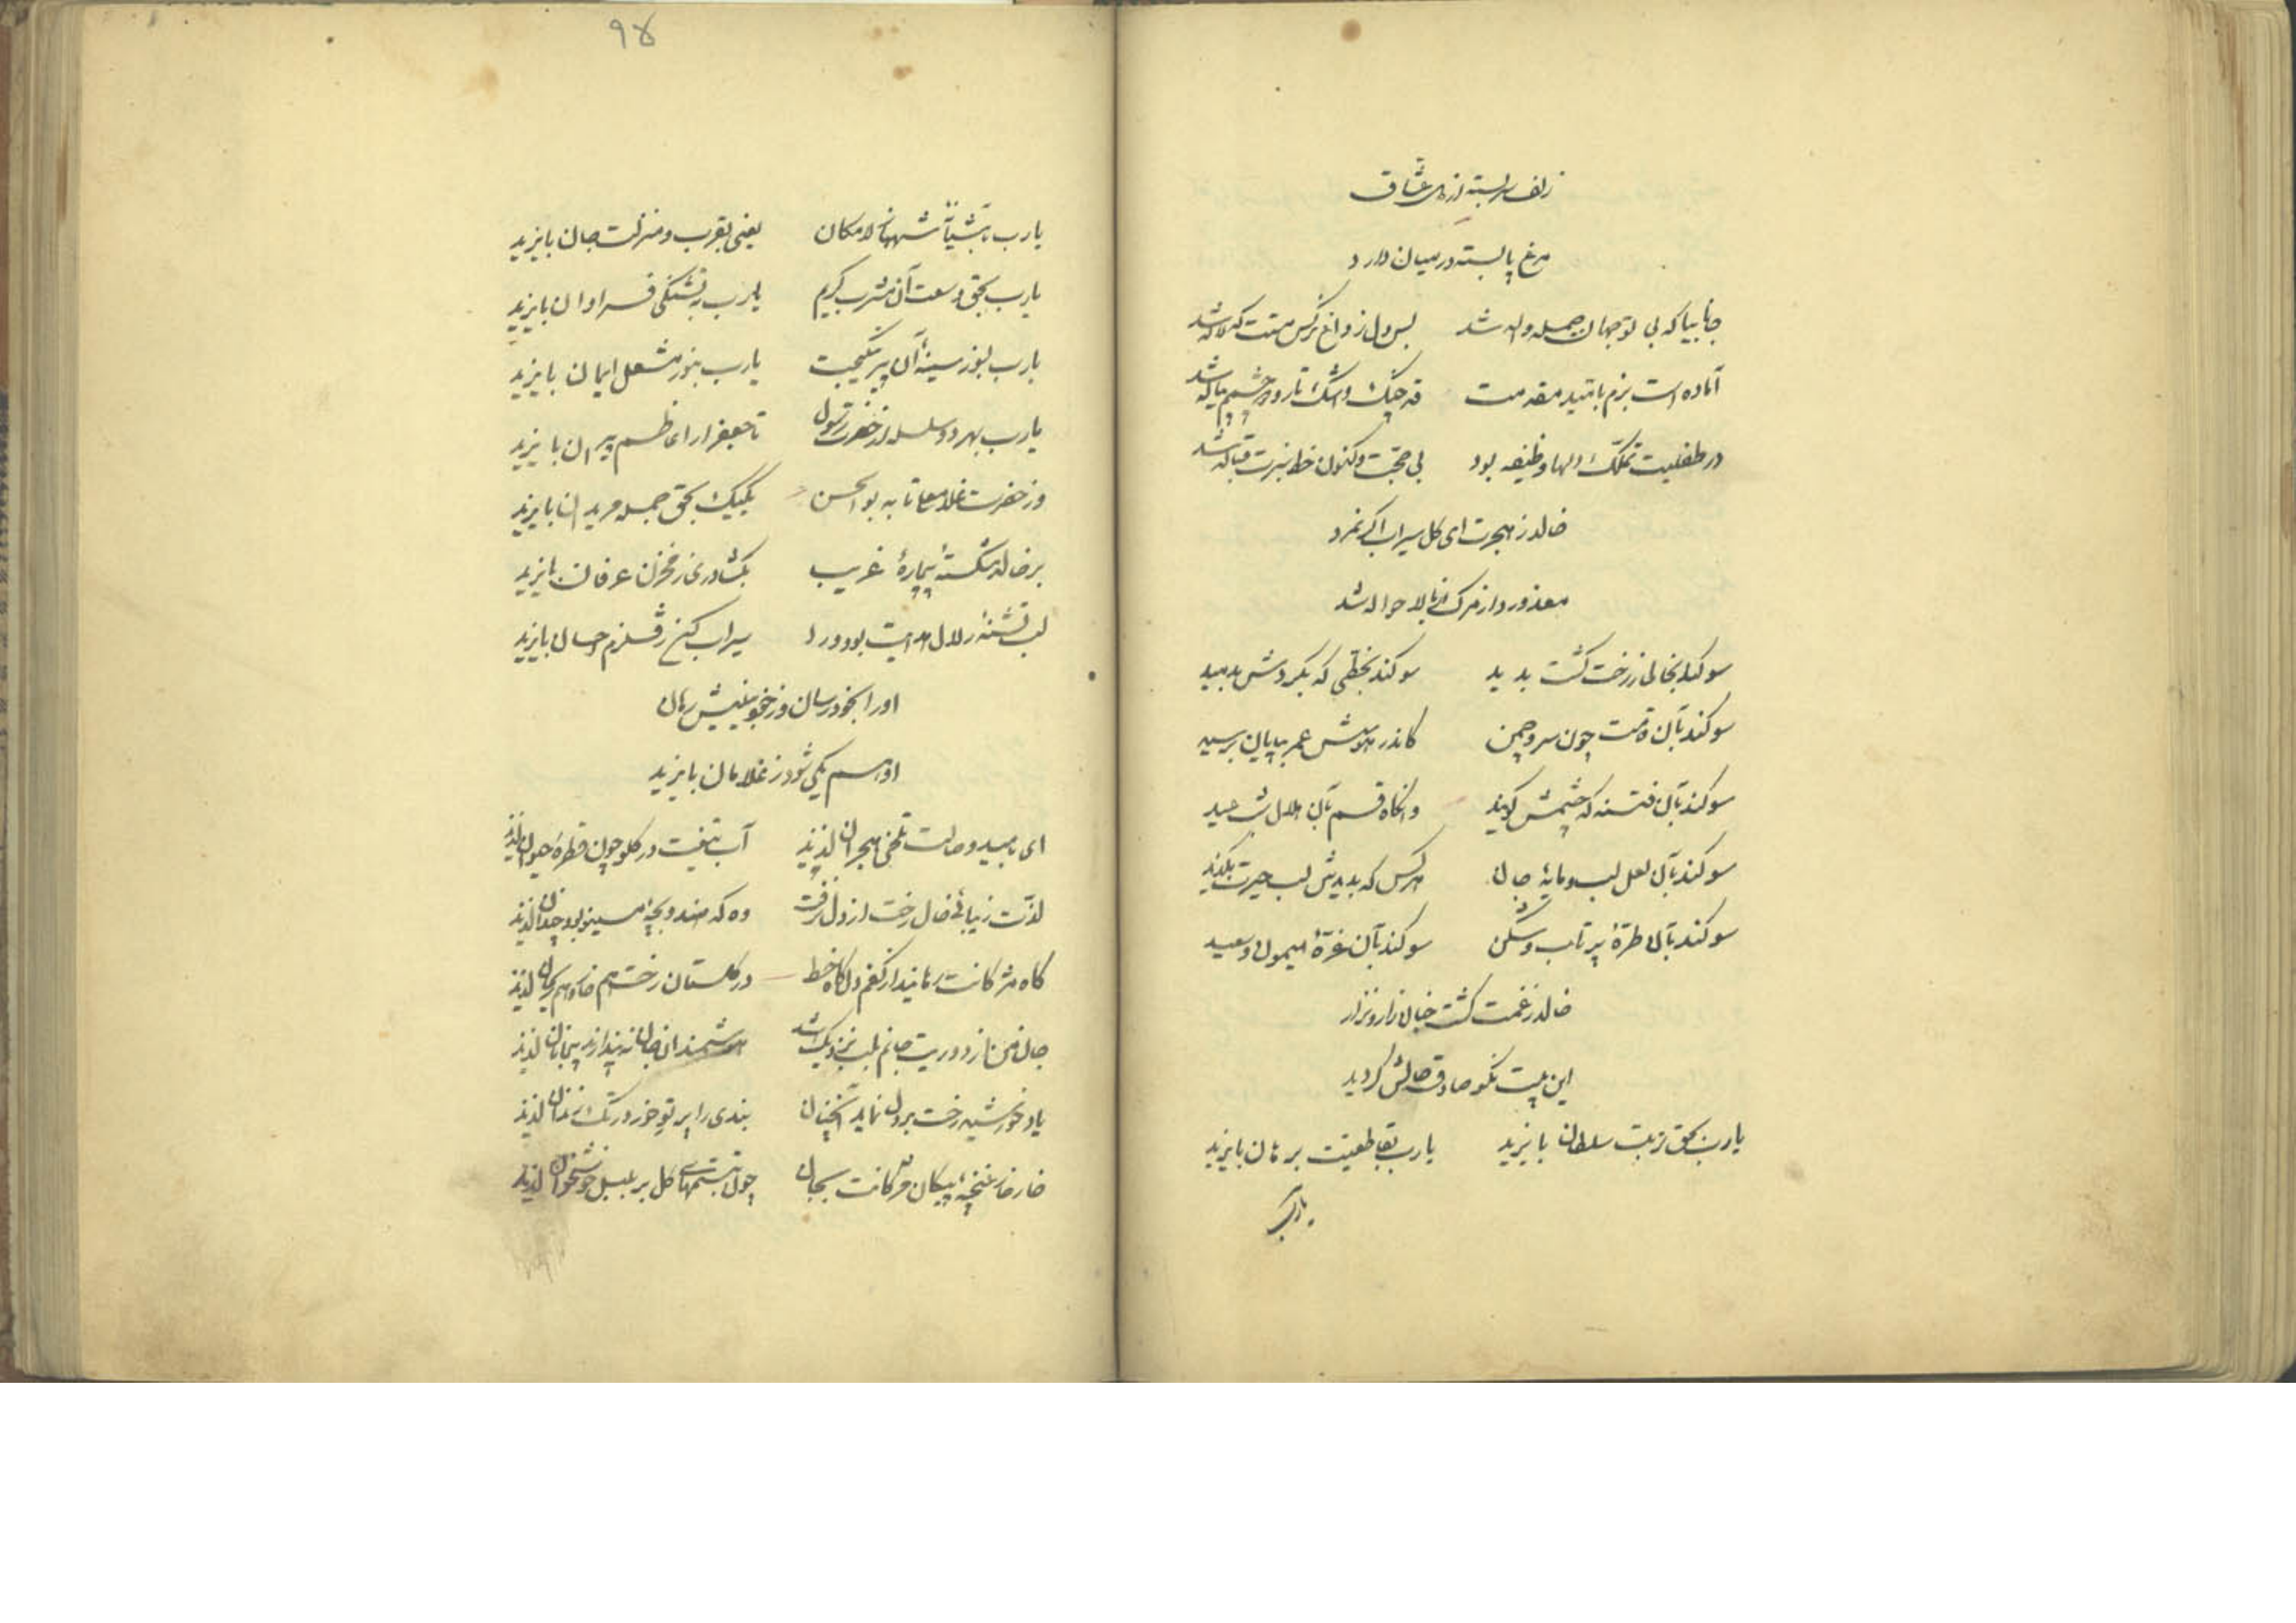 زلف سربسته از دل عشاق
مرغ پابسته در میان دارد
جانا بیا که بی تو جهان جمله واله شد بس دل ز داغ نرگس مستت که لاله شد
آماده است بزم بامید مقدمت قد چنگ و اشک تار و دو چشمم پیاله شد
در طفلیت تملک دلها وظیفه بود بی حجت و کنون خط سبزت قباله شد
خالد ز هجرت ای گل سیراب اگر نمرد
معذور دار مرگ
سوگند بخالی ز رخت گشت بدید سوگند بخطی که بگردش بدمید
سوگند بآن قامت چون سرو چمن کاندر هوسش عمر بپایان برسید
سوگند بآن فتنه که چشمش گویند وانگاه قسم بآن هلال شب عید
سوگند بآن لعل لب و مایهٔ جان هرکس که بدیدش لب حیرت بگزید
سوگند بآن طرهٔ پر تاب و شکن سوگند بآن غرهٔ میمون و سعید
خالد ز غمت گشت چنان زار و نزار
این بیت نگو صادق حالش گردید
یارب بحق تربت سلطان بایزید یارب بقاطعیت برهان بایزید
یارب
٩٤
یارب شه لامکان یعنی بقرب و منزلت جان بایزید
یارب بحق وسعت آن مشرب کریم یارب به تشنگی فراوان بایزید
یارب بنور سینهٔ آن پیر نیکبخت یارب بنور مشعل ایمان بایزید
یارب بهر دو سلسله از حضرت رسول تا جعفر از اعاظم پیران بایزید
وز حضرت غلامعلی تا به بوالحسن یکیک بحق جمله مریدان بایزید
بر خالد شکستهٔ بیچارهٔ غریب بگشا دری ز مخزن عرفان بایزید
لب تشنهٔ زلال هدایت بود ورا سیراب کن ز قلزم احسان بایزید
او را بخود رسان وز خودبینیش رهان
او هم یکی شود ز غلامان بایزید
ای بامید وصالت تلخی هجران لذیذ آب تیغت در گلو چون قطرهٔ حیوان لذیذ
لذت زیبائی خال رخت از دل نرفت وه که هندو بچهٔ
گاه مژگانت رباید از کفم دل گاه خط در گلستان رخت هم خار و هم ریحان لذیذ
جان من از دوریت جانم بلب نزدیک شد هوشمندان
یاد خورشید رخت بر دل نماید آنچنان بندی را پرتو خور در تک زندان لذیذ
خار خار غنچهٔ پیکان مژگانت بجان چون تبسمهای گل بر بلبل خوشخوان لذیذ